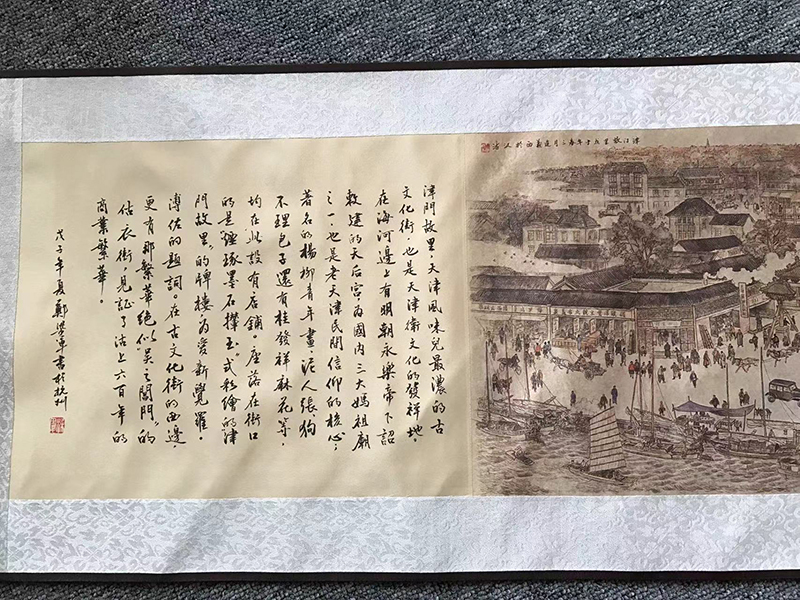 津江收景丙子年春二月道義西於天活
津門故里，天津風味兒最濃的古
文化街，也是天津衛文化的發祥地，
在海河邊上有明朝永樂帝下詔
敕建的天后宮為國內三大媽祖廟
之一，也是老天津民間信仰的核心；
著名的楊柳青年畫、泥人張、狗
不理包子還有桂發祥麻花等，
均在此設有店鋪。座落在街口
的是"雖琢墨石攆玉"式彩繪的津
門故里"的牌樓，為愛新覺羅。
溥佐的題詞。在古文化街的西邊，
更有那"繁華絕似吳之閶門"的
估衣街，見証了沽上六百年的
商業繁華。
戊子年夏鄭學軍書於杭州